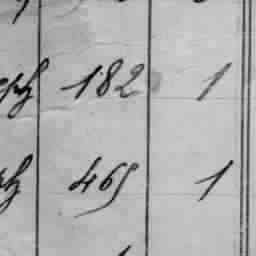 182 1
465 1